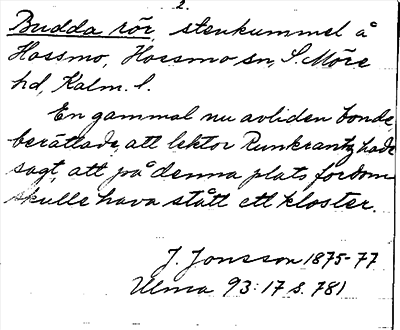 2.
Budda rör, stenkummel å
Hossmo, Hossmo sn, S. Möre
hd, Kalm. l.
En gammal nu avliden bonde,
berättade, att lektor Runkrantz hade
sagt, att på denna plats fordom
skulle hava stått ett kloster.
J. Jonsson 1875-77
Ulma 93:17 s. 781